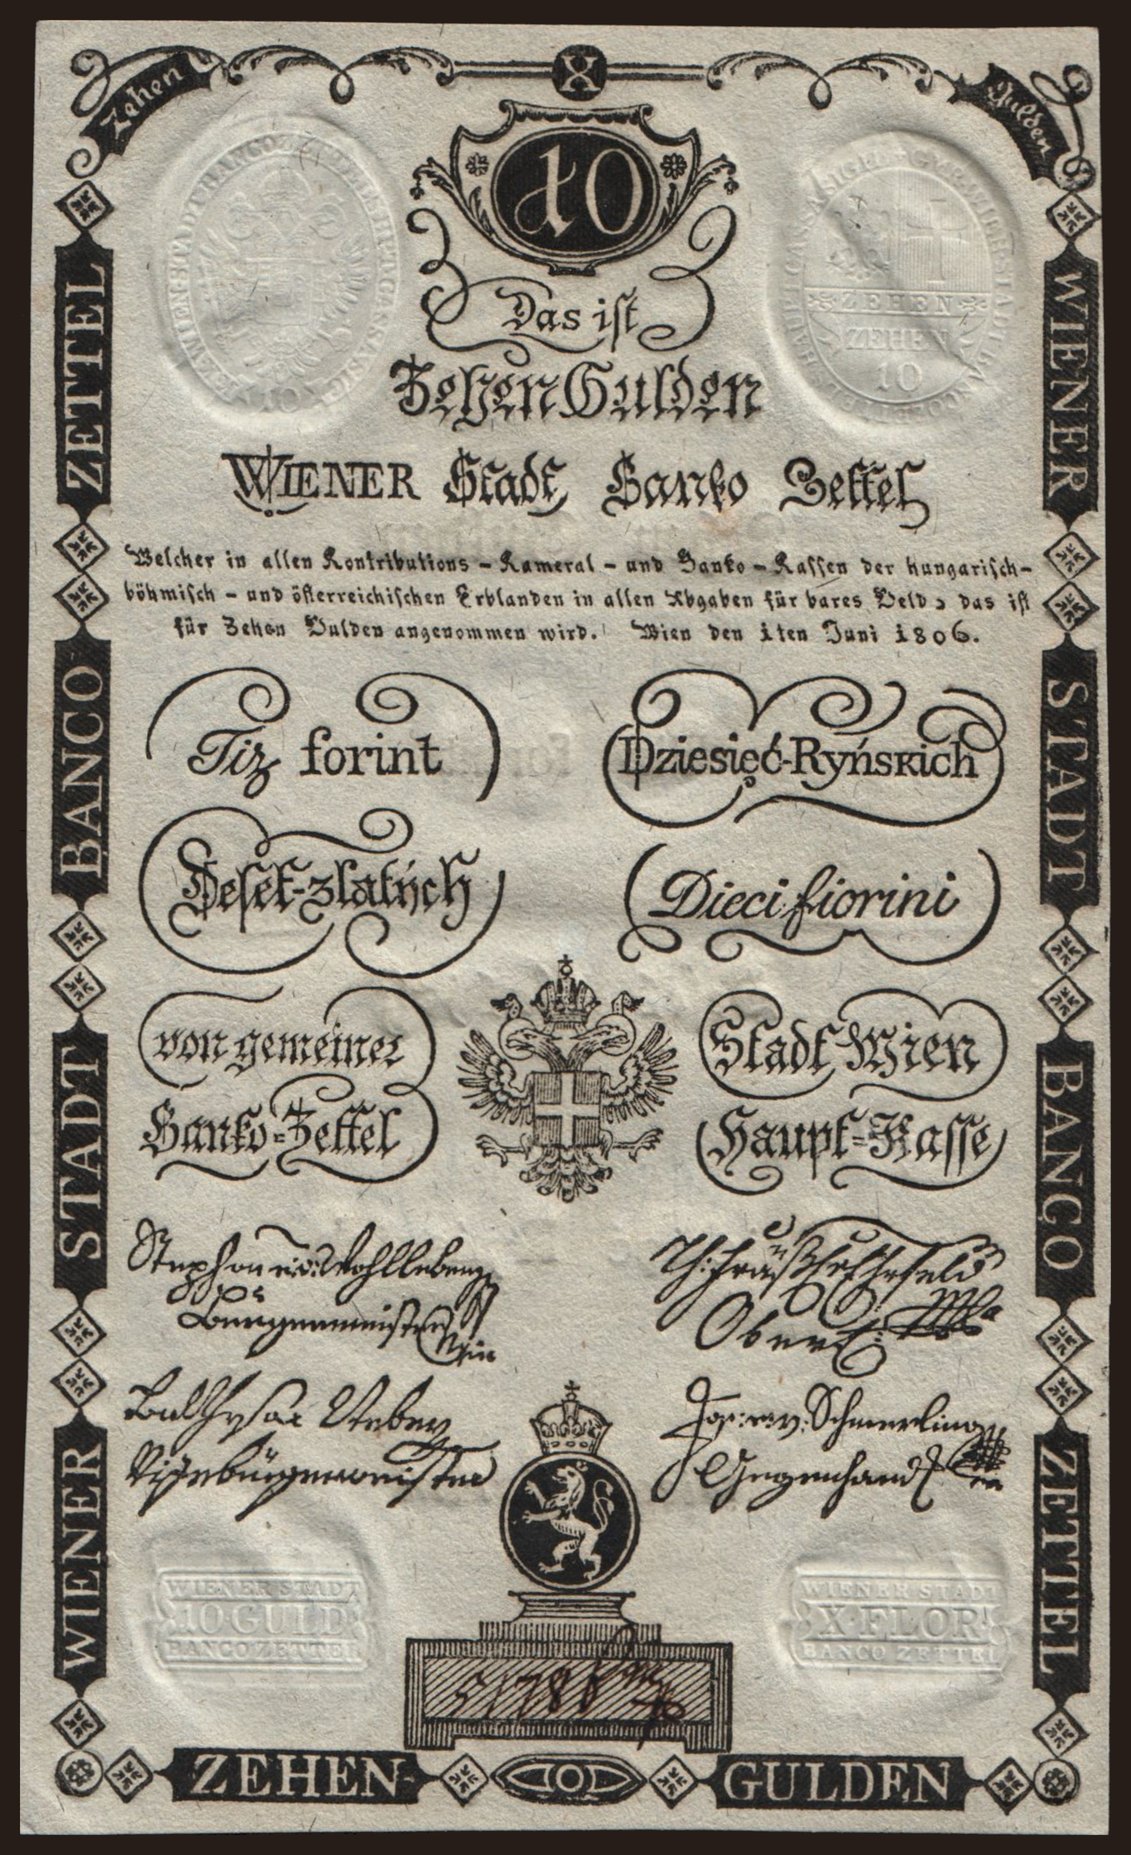 Zehen
X
Gulden
10
Das ist
Zehen Gulden
WIENER Stadt Banko Zettel
Welcher in allen Kontributions - Kameral - und Banko - Kassen der hungarisch-
böhmisch - und österreichischen Erblanden in allen Abgaben für bares Geld, das ist
für Zehen Gulden angenommen wird. Wien den 1ten Juni 1806.
Tiz forint
Dziesięć-Ryńskich
Deset-zlatých
Dieci fiorini
von gemeiner
Stadt Wien
Banko=Zettel
Haupt=Kasse
Stephan v: Wohlleben
Bürgermeister
Bald
Vizebürgermeister
Jos: Schmerling
Gegenhand
ZEHEN
ZEHEN
10
10
WIENER STADT
10 GULD
BANCO ZETTEL
WIENER STADT
X·FLOR
BANCO ZETTEL
WIENER STADT BANCO ZETTEL
WIENER STADT BANCO ZETTEL
ZEHEN GULDEN